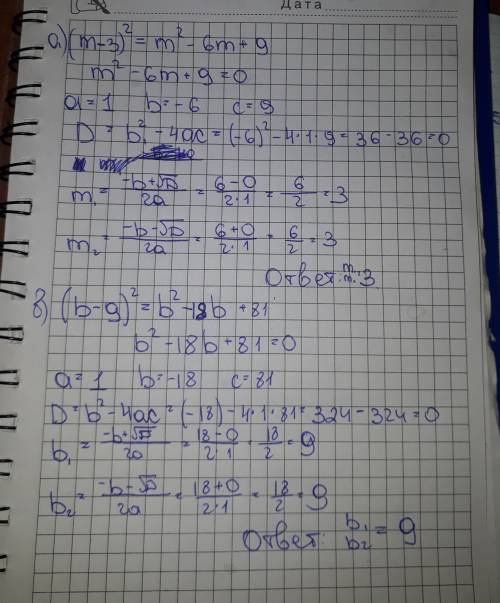 Дата
а) (m-3)² = m² - 6m + 9
m² - 6m + 9 = 0
a = 1 b = -6 c = 9
D = b² - 4ac = (-6)² - 4·1·9 = 36 - 36 = 0
m₁ = (-b+√D)/2a = (6-0)/(2·1) = 6/2 = 3
m₂ = (-b-√D)/2a = (6+0)/(2·1) = 6/2 = 3
Ответ: 3
в) (b-9)² = b² - 18b + 81
b² - 18b + 81 = 0
a = 1 b = -18 c = 81
D = b² - 4ac = (-18) - 4·1·81 = 324 - 324 = 0
b₁ = (-b+√D)/2a = (18-0)/(2·1) = 18/2 = 9
b₂ = (-b-√D)/2a = (18+0)/(2·1) = 18/2 = 9
Ответ: b₁ b₂ = 9